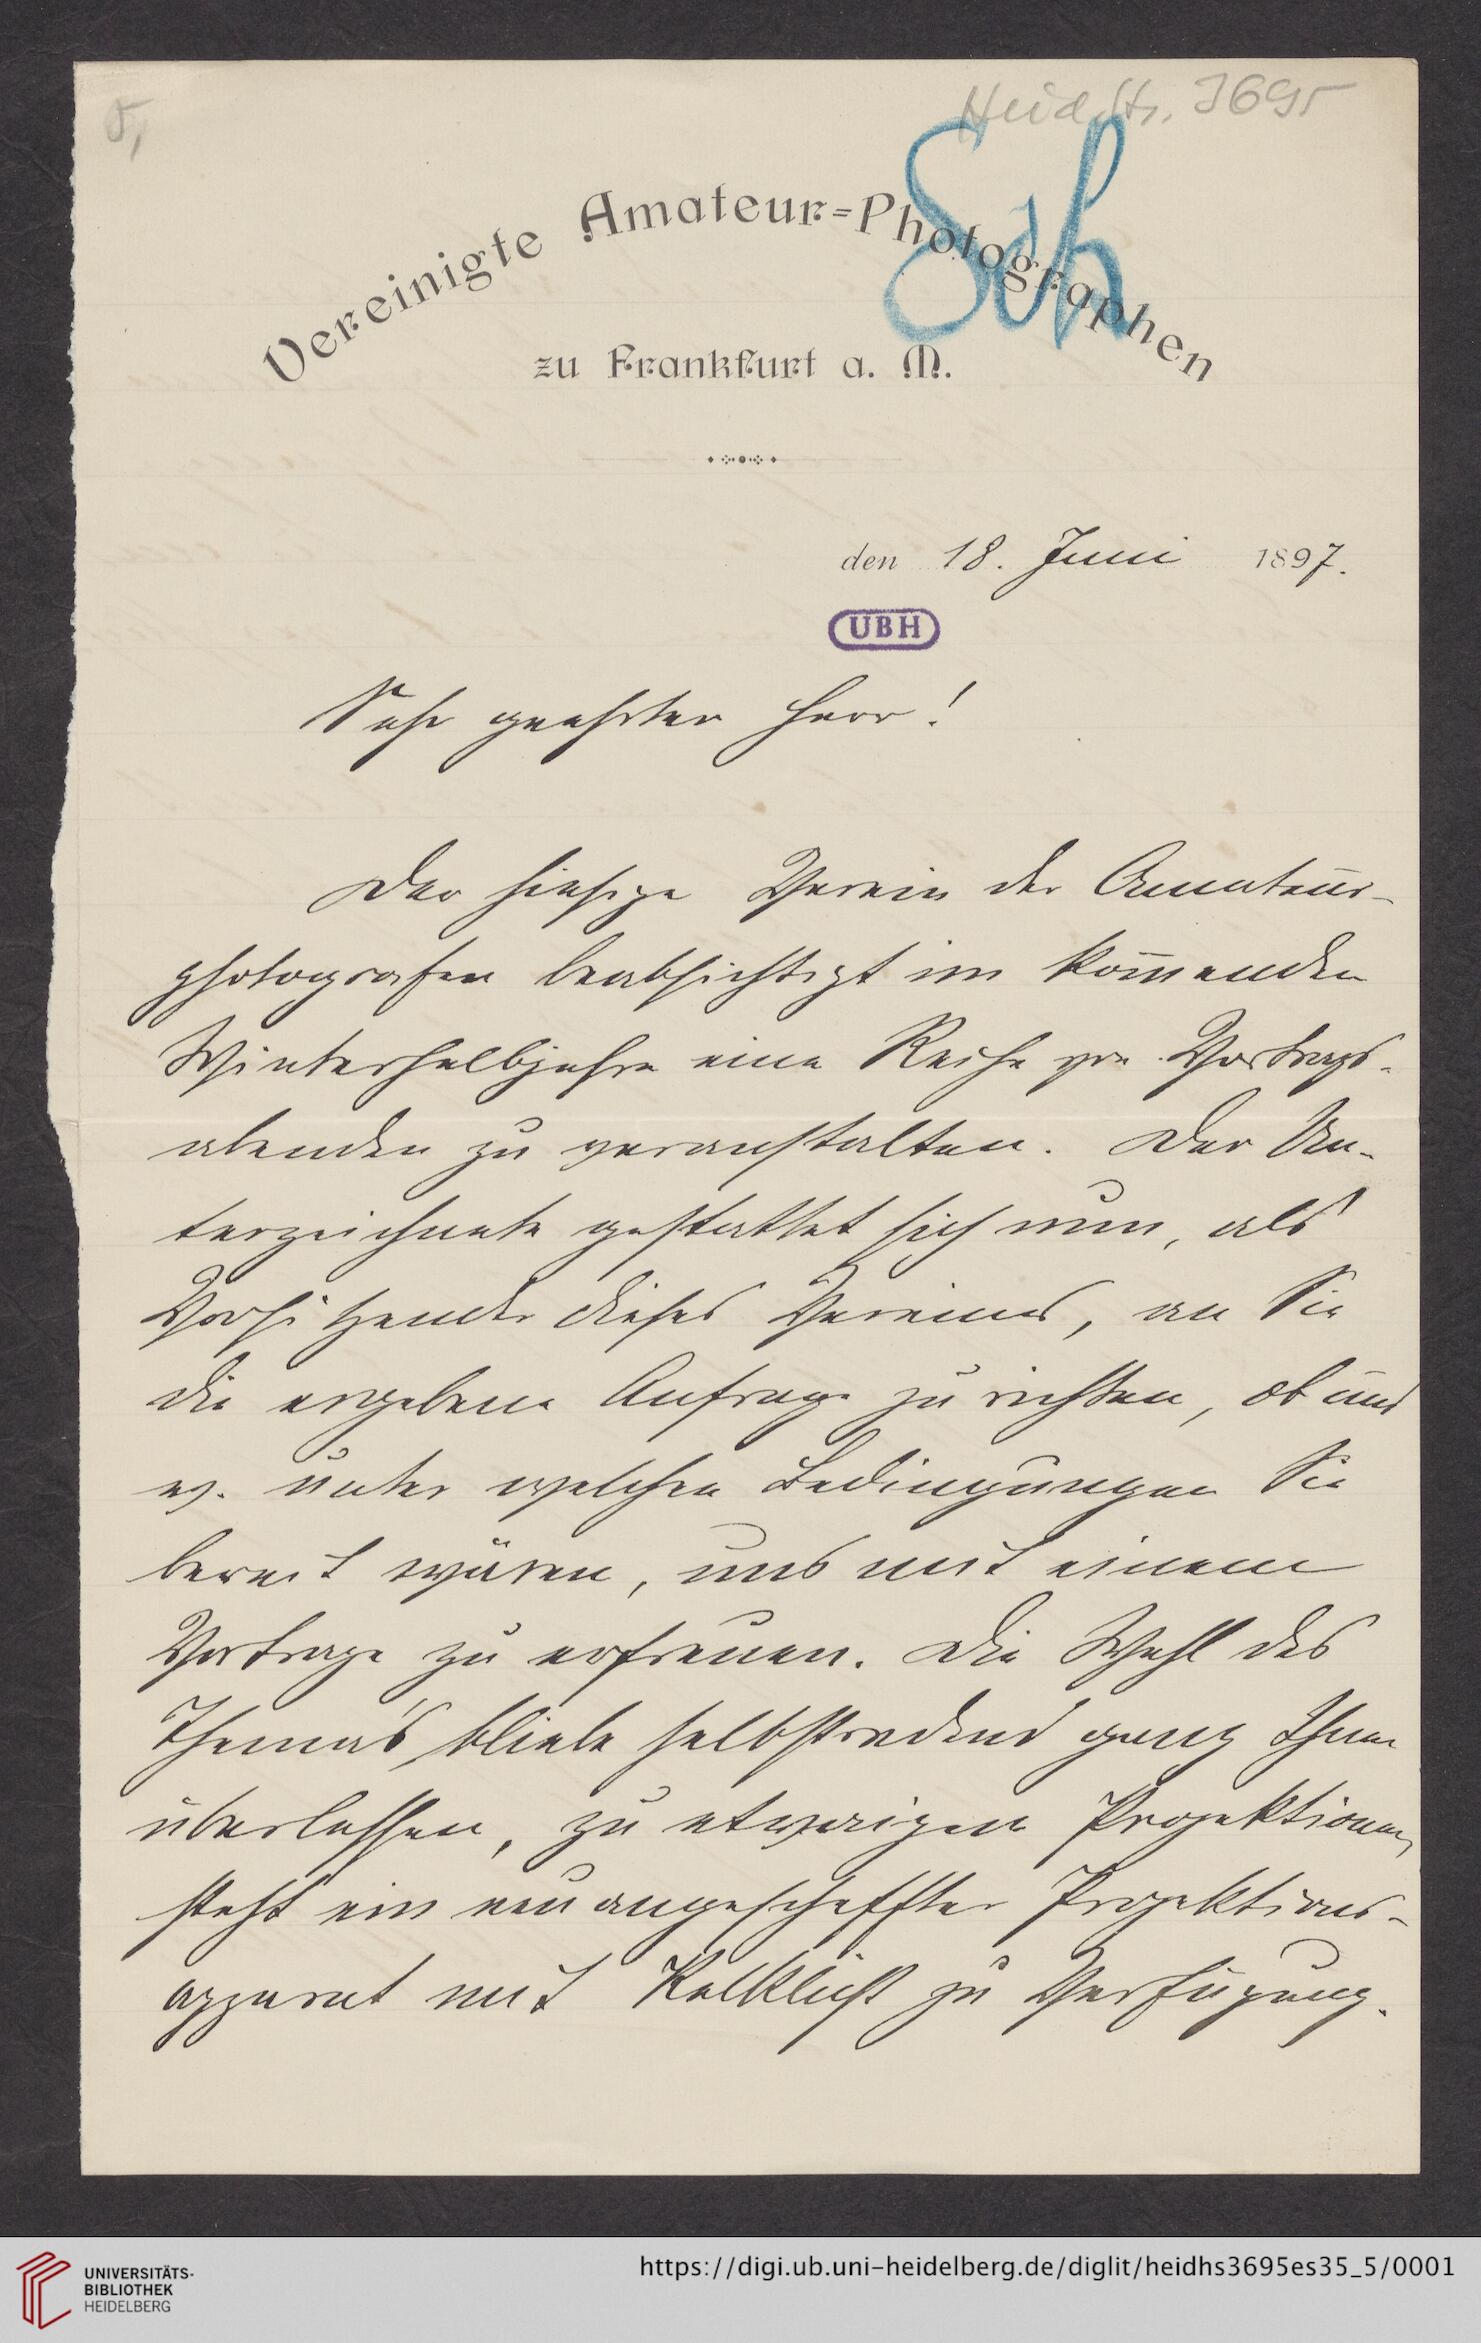 5,
Heid.Hs. 3695
Sch
Vereinigte Amateur=Photographen
zu Frankfurt a. M.
den 18. Juni 1897.
UBH
Sehr geehrter Herr!
Der hiesige Verein der Amateur-
photografen beabsichtigt im kom̅enden
Winterhalbjahre eine Reihe von Vortrags-
abenden zu veranstalten. Der Un-
terzeichnete gestattet sich nun, als
Vorsitzender dieses Vereines, an Sie
die ergebene Anfrage zu richten, ob und
ev. unter welchen Bedingungen Sie
bereit wären, uns mit einem
Vortrage zu erfreuen. Die Wahl des
Themas bliebe selbstredend ganz Ihnen
überlassen, zu etwaigen Projektionen
steht ein neuangeschaffter Projektions-
apparat mit Kalklicht zu Verfügung.
UNIVERSITÄTS-
BIBLIOTHEK
HEIDELBERG
https://digi.ub.uni-heidelberg.de/diglit/heidhs3695es35_5/0001